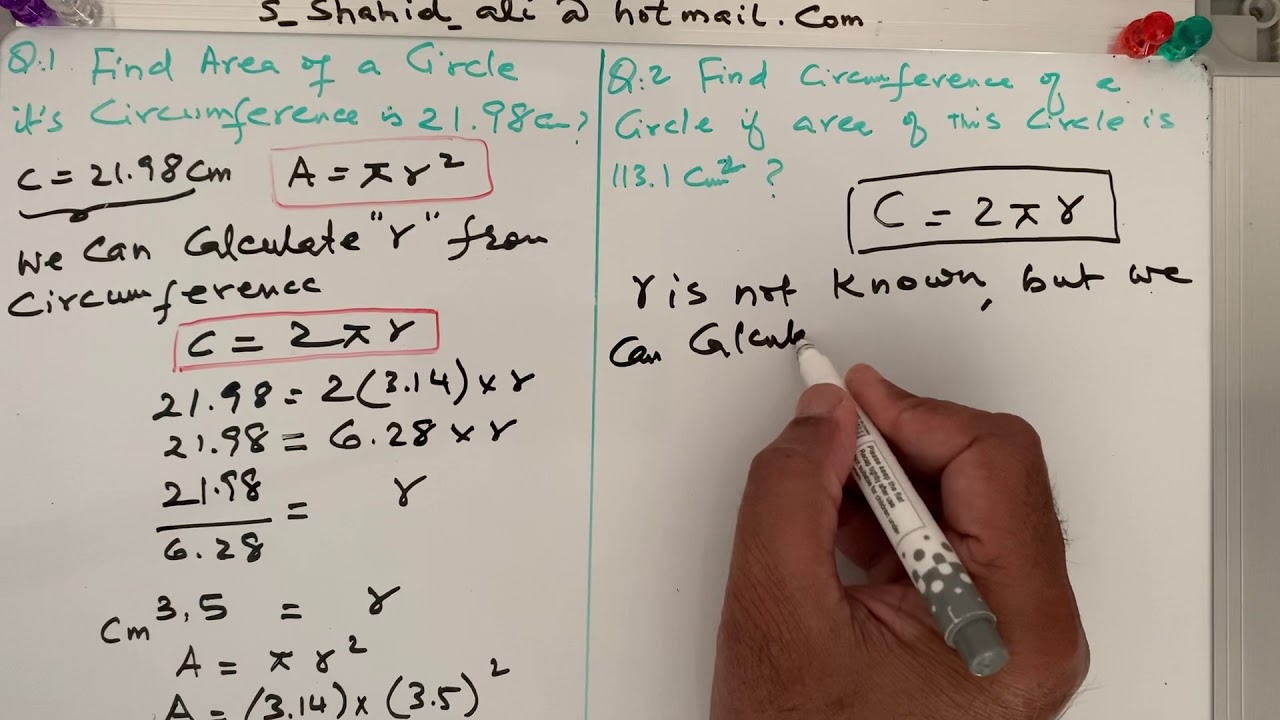 s_shahid_ali@hotmail.com
Q.1 Find Area of a Circle
it's Circumference is 21.98cm?
C = 21.98cm A = πr²
we can Calculate "r" from
Circumference
C = 2πr
21.98 = 2(3.14)×r
21.98 = 6.28×r
21.98
6.28
= r
cm 3.5 = r
A = πr²
A = (3.14)×(3.5)²
Q.2 Find Circumference of a
Circle if area of this Circle is
113.1 cm² ?
C = 2πr
r is not known, but we
can Calcul
Please keep the flat